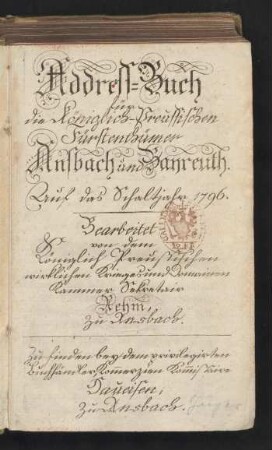 Address=Buch
für
die Königlich=Preussischen
Fürstenthümer
Ansbach und Bayreuth.
Auf das Schaltjahr 1796.
Bearbeitet
von dem
Königlich Preussischen
wirklichen Krieges und Domainen
Kammer Sekretair
Rehm,
zu Ansbach.
Zu finden bey dem privilegirten
Buchhändler Kommerzien Kommissaire
Daueisen,
zu Ansbach.